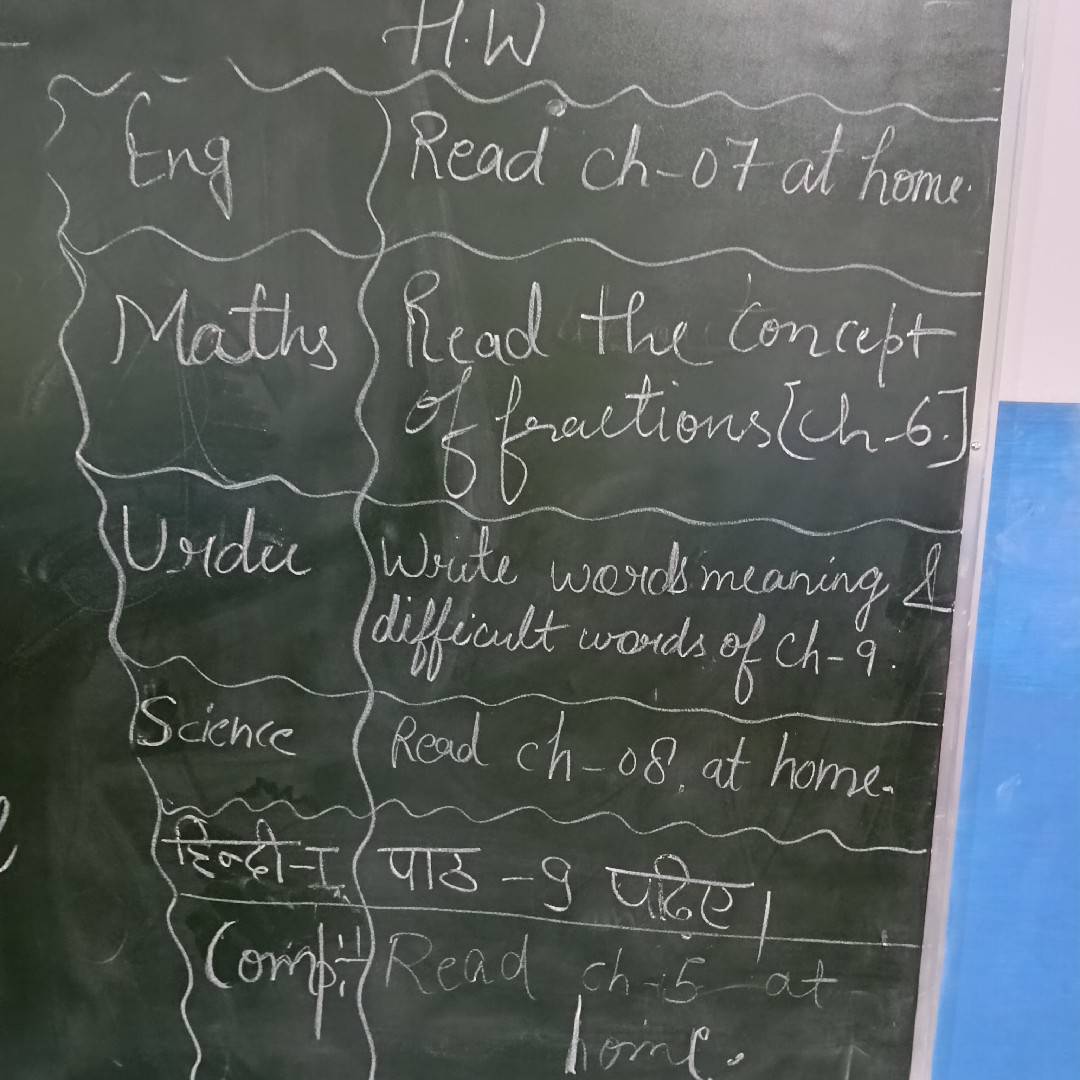 H.W
Eng Read ch-07 at home.
Maths Read the concept
of fractions [Ch-6.]
Urdu Write words meaning &
difficult words of Ch-9.
Science Read ch-08, at home.
हिन्दी-I पाठ -9 पढ़िए।
Comp. Read ch-5 at
home.